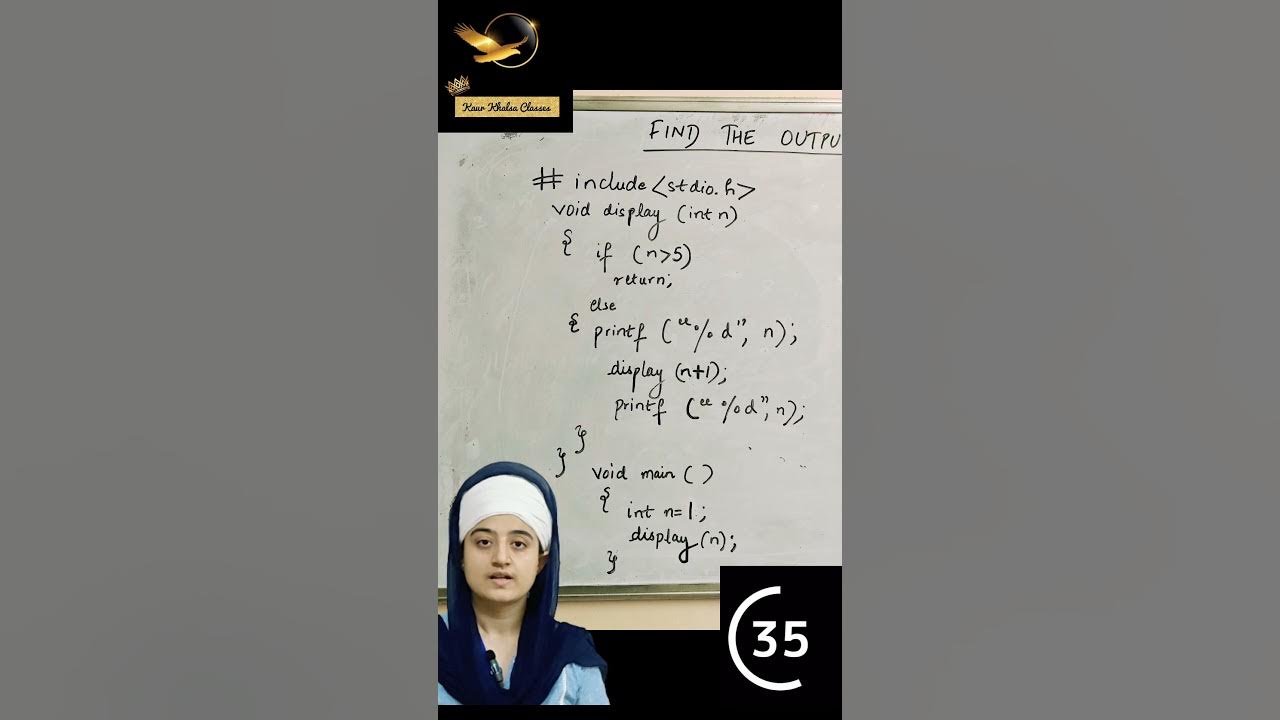 Kaur Khalsa Classes
FIND THE OUTPU
# include <stdio.h>
void display (int n)
{ if (n>5)
return;
else
{ printf ("%d", n);
display (n+1);
printf ("%d", n);
}
}
void main ( )
{ int n=1;
display (n);
}
35